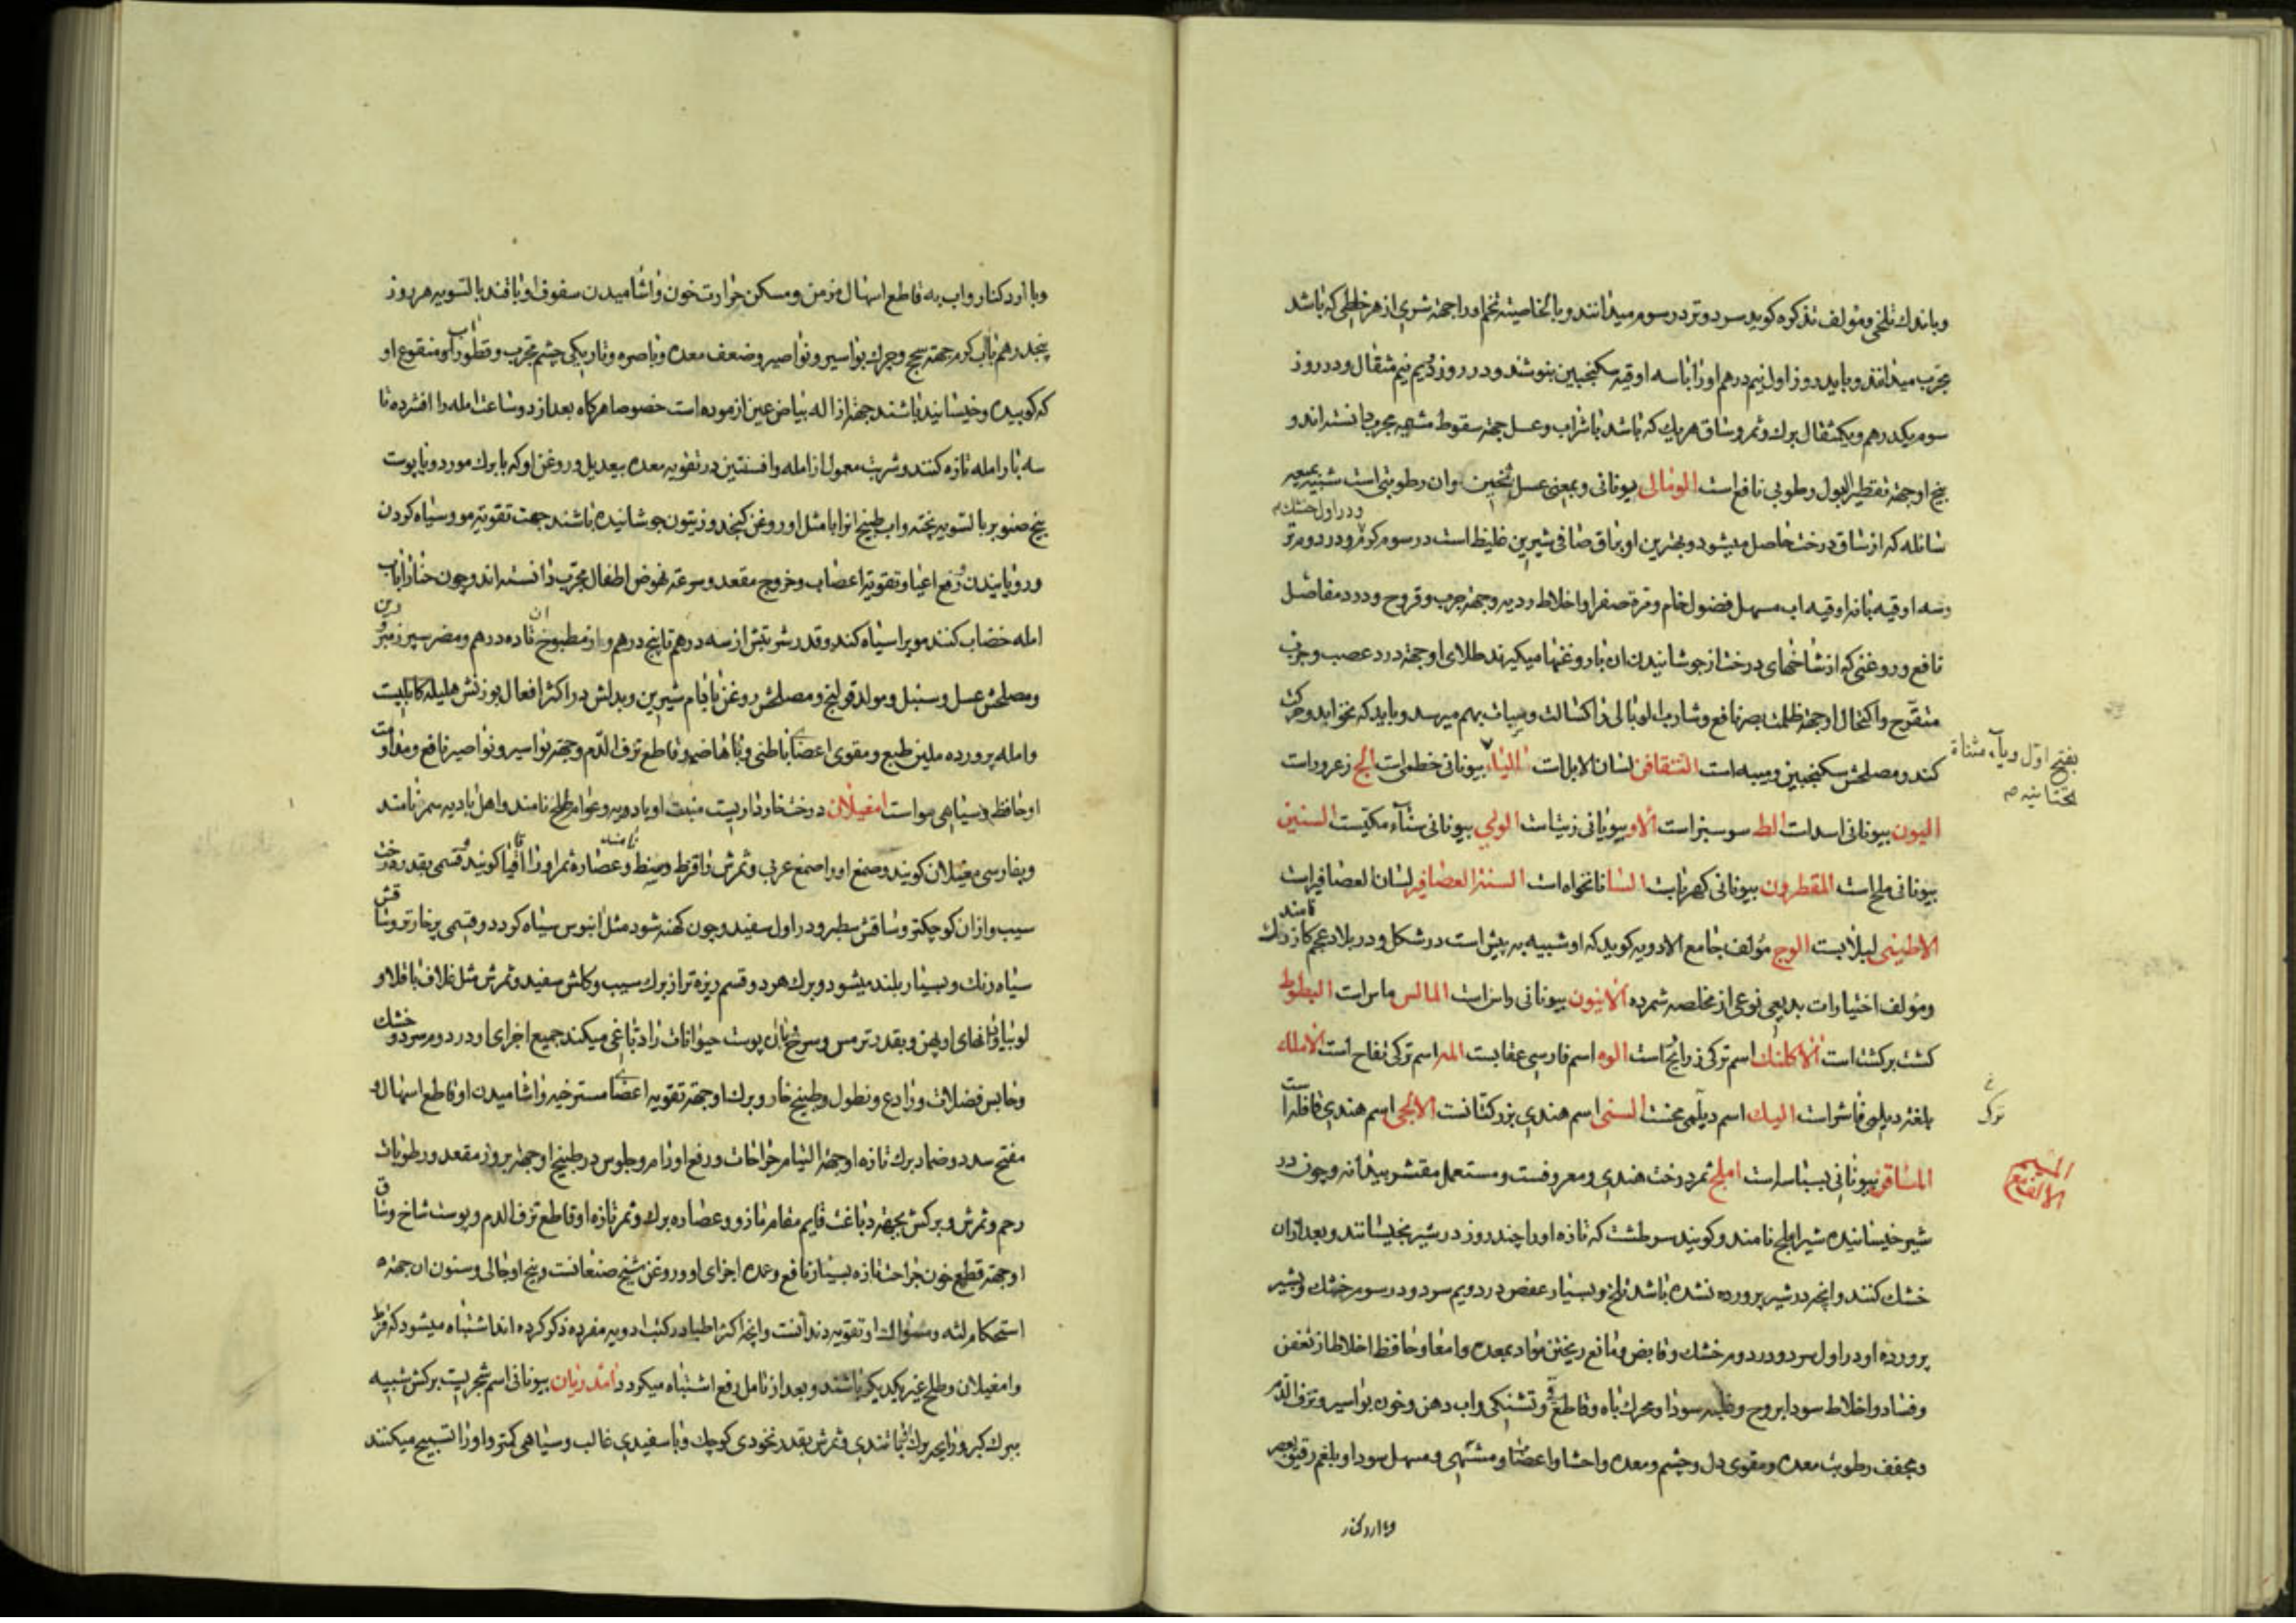 وباندك تلخى ومؤلف تذكره كويد سرد وتر در سوم ميدانند وبالخاصيته تخم اورا جهة شرى از هر خلطى كه باشد
مجرب ميدانند وبايد روز اول نيم درهم اورا با سه اوقيه سكنجبين بنوشند ودر روز دويم نيم مثقال ودر روز
سوم يكدرهم ويكمثقال برك وثمر وساق هريك كه باشد با شراب وعسل جهة سقوط مشيمه مجرب دانسته اند و
بيخ او جهة تقطير البول رطوبى نافع است الونالى بيونانى وبمعنى عسل ثخين وان رطوبتى است شبيه بميعه
ودر اول خشك
سائله كه از ساق درخت حاصل ميشود وبهترين او براق صافى شيرين غليظ است در سوم كرم ودر دوم تر
وسه اوقيه با نه اوقيه اب مسهل فضول خام ومره صفرا واخلاط رديه وجهة جرب وقروح ودرد مفاصل
نافع وروغنى كه از شاخهاى درختش از جوشانيدن ان با روغنها ميكيرند طلاى او جهة درد عصب وجرب
متقرح واكتحال او جهة ظلمت بصر نافع وشارب الونالى را كسالت وسبات بهم ميرسد وبايد كه نخوابد وحركت
كند ومصلحش سكنجبين وميبه است النتقافن لسان الابل است الياء بيونانى خطمى است الج زعرور است
بفتح اول وياء مثناة
تحتانيه
اليون بيونانى اسد است الط سوسبز است الاو بيونانى زيتست الوبى بيونانى سناء مكيست السنين
بيونانى ملح است المقطرون بيونانى كهرباست السا نانخواه است السنة العصافير لسان العصافير است
نامند
الاطينى لبلابست الوج مؤلف جامع الادويه كويد كه او شبيه به پيش است در شكل ودر بلاد عجم كازرك
ومؤلف اختيارات بديعى نوعى از مخلصه شمرده الانيون بيونانى راسن است المالس ماس است البطوط
كشت بركشت است الاكلنك اسم تركى زرايح است الوه اسم فارسى عقابست المه اسم تركى تفاح است الامله
بلغة ديلمى فاشراست اليك اسم ديلمى محنث السنى اسم هندى بزركتانست الابجى اسم هندى قافله است
ترك
المساقن بيونانى بسباسه است املج ثمر درخت هندى ومعروفست ومستعمل مقشر بيدانه وچون در
شير خيسانيده شير املج نامند وكويند سرطشت كه تازه اورا چند روز در شير بخيسانند وبعد از ان
خشك كنند وانچه در شير پرورده نشده باشد تلخ وبسيار عفص در دويم سرد ودر سوم خشك وبشير
پرورده او در اول سرد ودر دوم خشك وقابض ومانع ريختن مواد بمعده وامعا وحافظ اخلاط از تعفن
وفساد واخلاط سودا بروح وغلبه سودا ومحرك باه وقاطع قى وتشنكى واب دهن وخون بواسير ونزف الدم
ومجفف رطوبت معده ومقوى دل وچشم ومعده واحشا واعضا ومشتهى ومسهل سودا وبلغم رقيق بعصر
وبا ارد كنار
وبا ارد كنار واب به قاطع اسهال مزمن ومسكن حرارت خون واشاميدن سفوف او با قند بالتسويه هر روز
پنجدرهم باب كرم جهة سحج وجرك بواسير ونواصير وضعف معده وباصره وتاريكى چشم مجرب وقطور اب منقوع او
كه كوبيده وخيسانيده باشند جهة ازاله بياض عين ازموده است خصوصا هركاه بعد از دو ساعت امله را افشرده تا
سه بار امله تازه كنند وشربت معمول از امله وافسنتين در تقويه معده بيعديل وروغن او كه با برك مورد وبا پوست
بيخ صنوبر بالتسويه پخته واب طبيخ انرا با مثل او روغن كنجد وزيتون جوشانيده باشند جهت تقويه مو وسياه كردن
ورويانيدن ورفع اعيا وتقويه اعصاب وخروج مقعد وسرعة نهوض اطفال مجرب دانسته اند وچون حنا را باب
امله خضاب كنند مو را سياه كند وقدر شربتش از سه درهم تا پنج درهم واز مطبوخ ان تا ده درهم ومضر سپرز
ومصلحش عسل وسنبل ومولد قولنج ومصلحش روغن بادام شيرين وبدلش در اكثر افعال بوزنش هليله كابليست
وامله پرورده ملين طبع ومقوى اعضاى باطنى وباهاضمه وقاطع نزف الدم وجهة بواسير ونواصير نافع ومداومت
او حافظ سياهى مو است امغيلان درخت خارداريست منبت او باديه وعوام طلح نامند واهل باديه سمر نامند
وبفارسى مغيلان كويند وصمغ اورا صمغ عربى وثمرش را قرظ وسنط وعصاره ثمر اورا اقاقيا كويند قسمى بقدر درخت
سيب وازان كوچكتر وساقش سطبر ودر اول سفيد وچون كهنه شود مثل ابنوس سياه كردد وقسمى پرخارتر وساقش
سياه رنك وبسيار بلند ميشود وبرك هر دو قسم ريزه تر از برك سيب وكلش سفيد وثمرش مثل غلاف باقلا و
لوبيا ودانهاى او پهن وبقدر ترمس وسرخ بان پوست حيوانات را دباغى ميكنند جميع اجزاى او در دوم سرد وخشك
وحابس فضلات ورادع ونطول وطبيخ خار وبرك او جهة تقويه اعضاى مسترخيه واشاميدن او قاطع اسهال و
مفتح سدد وضماد برك تازه او جهة التيام جراحات ورفع اورام وجلوس در طبيخ او جهة بروز مقعد ورطوبات
رحم وثمرش وبركش بجهة دباغت قايم مقام مازو وعصاره برك وثمر تازه او قاطع نزف الدم وپوست شاخ وساق
او جهة قطع خون جراحت تازه بسيار نافع وعمده اجزاى او روغن شيخ صنعانست وبيخ او جالى وسنون ان جهة
استحكام لثه ومسواك او تقويه دندانست وانچه اكثر اطبا در كتب ادويه مفرده ذكر كرده اند اشتباه ميشود كه قرظ
وامغيلان وطلح غير يكديكر باشند وبعد از تامل رفع اشتباه ميكردد امدريان بيونانى اسم شجريست بركش شبيه
ببرك كبر ورايحه برك ثمانندى وثمرش بقدر نخودى كوچك وبا سفيدى غالب وسياهى كمتر واورا تسبيح ميكنند